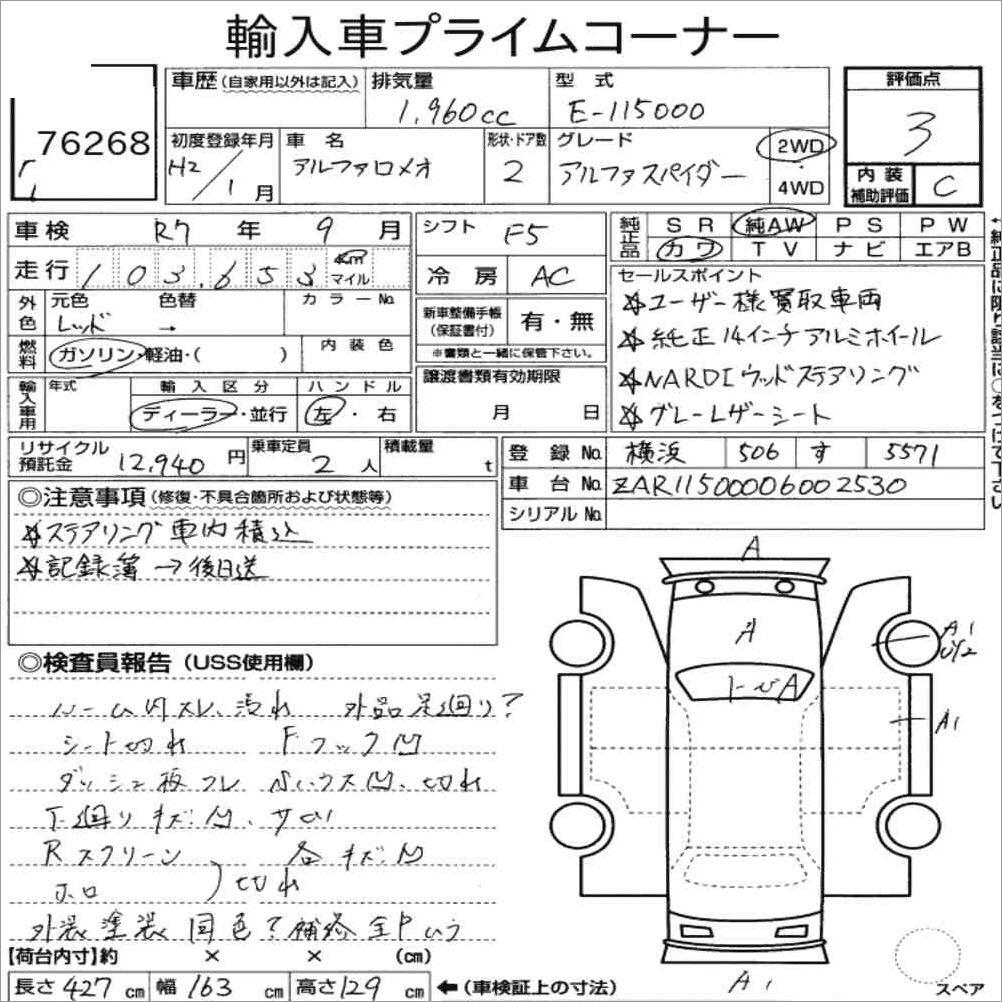 輸入車プライムコーナー
76268
車歴(自家用以外は記入) 排気量 1,960cc 型式 E-115000 評価点 3
初度登録年月 H2/1月 車名 アルファロメオ 形状・ドア数 2 グレード アルファスパイダー 2WD・4WD 内装補助評価 C
車検 R7年9月 シフト F5 純正品 SR 純AW PS PW
カワ TV ナビ エアB
走行 103,653 km マイル 冷房 AC
セールスポイント
☆ユーザー様買取車両
☆純正14インチアルミホイール
☆NARDIウッドステアリング
☆グレーレザーシート
←純正品に限り該当に○をつけて下さい
外色 元色 レッド 色替 → カラーNo.
新車整備手帳(保証書付) 有・無
※書類と一緒に保管下さい。
燃料 ガソリン・軽油・( ) 内装色
輸入車用 年式 輸入区分 ディーラー・並行 ハンドル 左・右
譲渡書類有効期限 月 日
リサイクル預託金 12,940円 乗車定員 2人 積載量 t
登録No. 横浜 506 す 5571
車台No. ZAR11500006002530
シリアルNo.
◎注意事項(修復・不具合箇所および状態等)
☆ステアリング車内積込
☆記録簿→後日送
◎検査員報告(USS使用欄)
ルーム内スレ、汚れ 外品足廻り?
シート切れ Fフック凹
ダッシュ板フレ 凹、切れ
下廻りキズ凹、サビ
Rスクリーン 各キズ凹
ホロ 切れ
外装塗装同色?補修全P
A
A
A
A1
A1
A1
スペア
【荷台内寸】約 × × (cm)
長さ427cm 幅163cm 高さ129cm ←(車検証上の寸法)